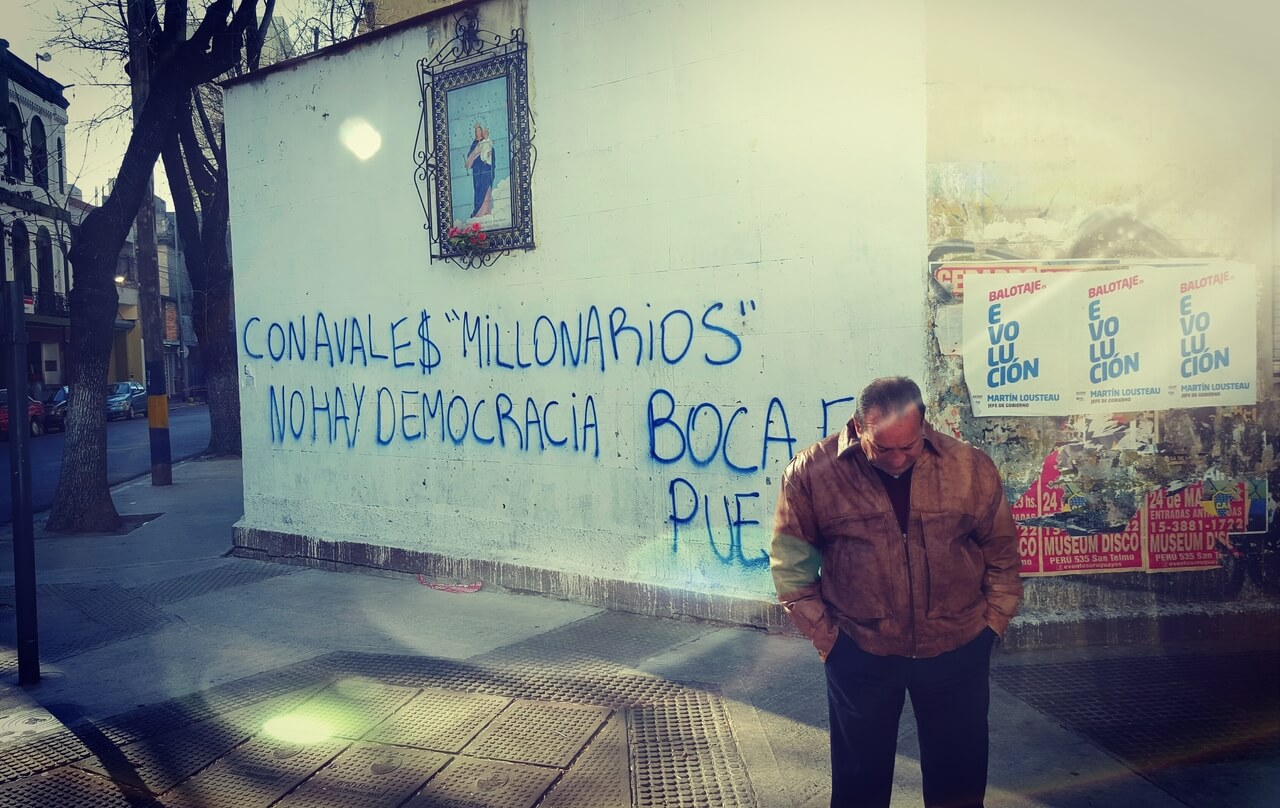 CON AVALE$ "MILLONARIOS"
NO HAY DEMOCRACIA BOCA
PUE
BALOTAJE
E
VO
LU
CIÓN
MARTÍN LOUSTEAU
JEFE DE GOBIERNO
BALOTAJE
E
VO
LU
CIÓN
MARTÍN LOUSTEAU
JEFE DE GOBIERNO
BALOTAJE
E
VO
LU
CIÓN
MARTÍN LOUSTEAU
JEFE DE GOBIERNO
hs.
24
24 de MA
15-3881-1722
MUSEUM DISCO
PERÚ 535 San Telmo
MUSEUM DISC
PERÚ 535 San Telmo